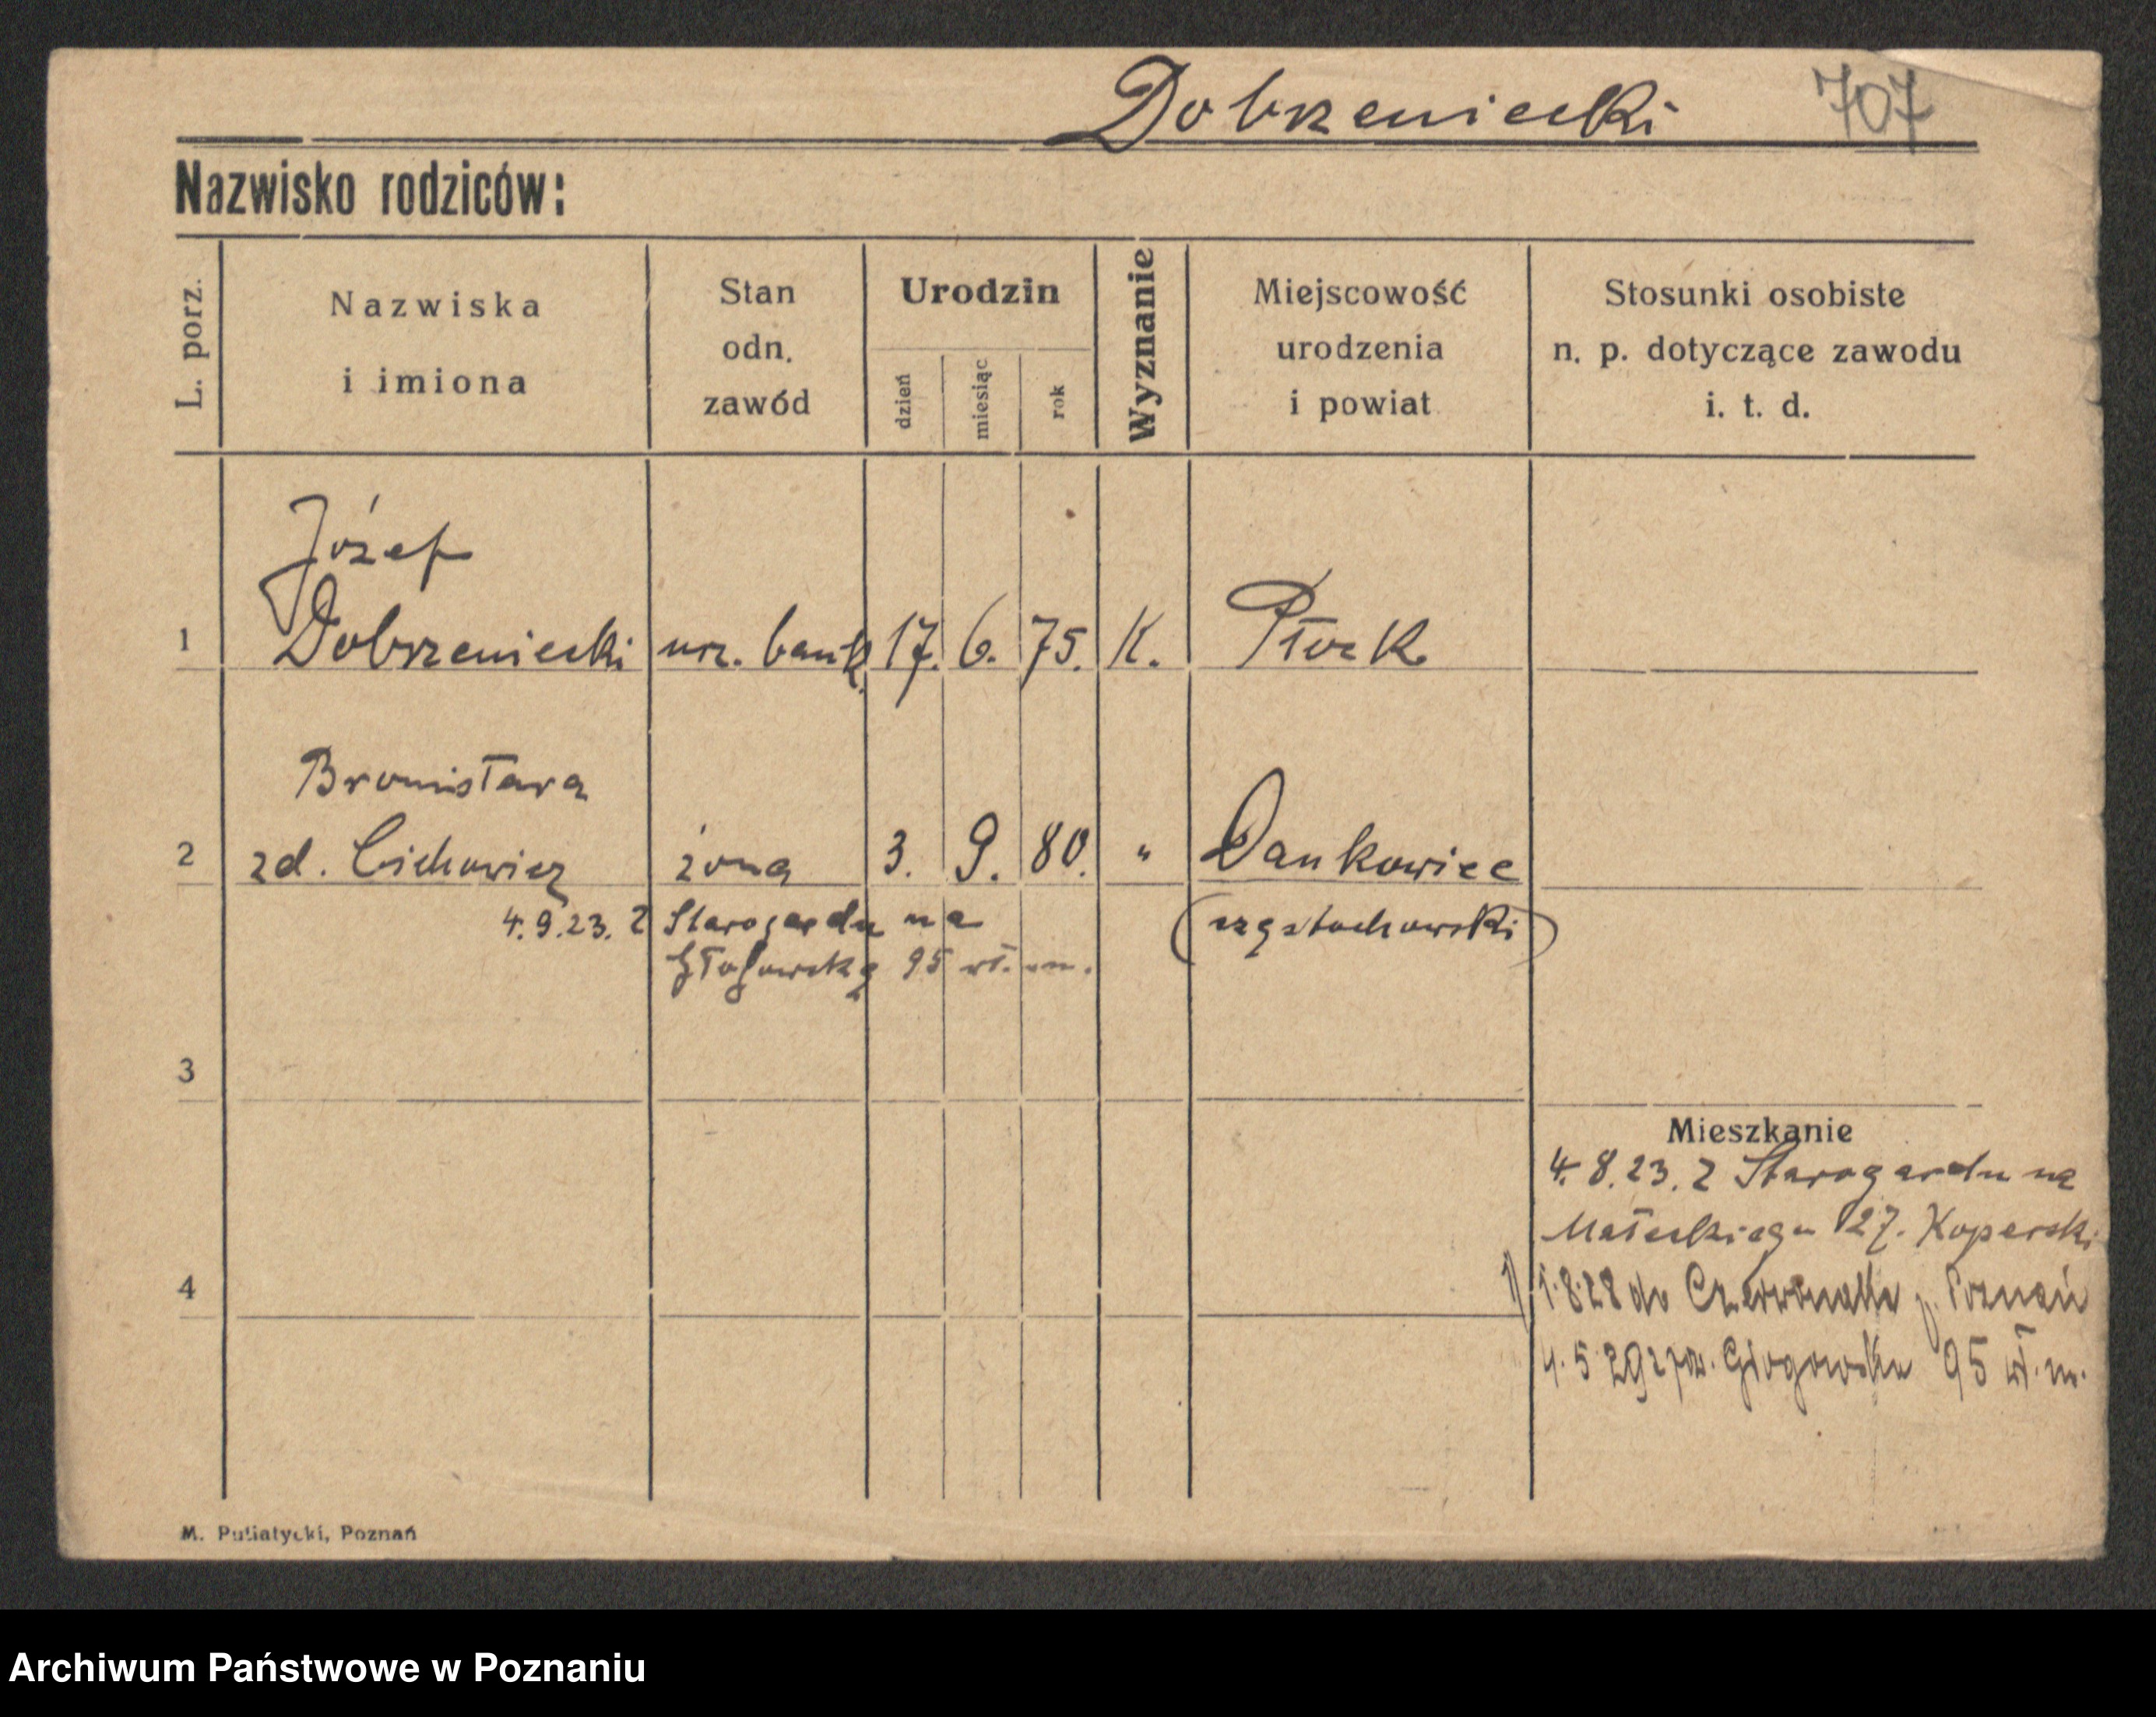 Dobrzeniecki 707
Nazwisko rodziców:
L. porz.
Nazwiska
i imiona
Stan
odn.
zawód
Urodzin
dzień
miesiąc
rok
Wyznanie
Miejscowość
urodzenia
i powiat
Stosunki osobiste
n. p. dotyczące zawodu
i. t. d.
Józef
1 Dobrzeniecki urz. bank. 17. 6. 75. K. Płock
Bronisława
2 zd. Cichowicz żona 3. 9. 80. " Dankowice
4.9.23. z Starogardu na (częstochowski)
Głogowską 95 wł. m.
3
Mieszkanie
4.8.23. z Starogardu na
Małeckiego 27. Koperski
4
1.8.28 do Czerwonaka p. Poznań
4.5.29 z pow. Głogowska 95 wł. m.
M. Putiatycki, Poznań
Archiwum Państwowe w Poznaniu